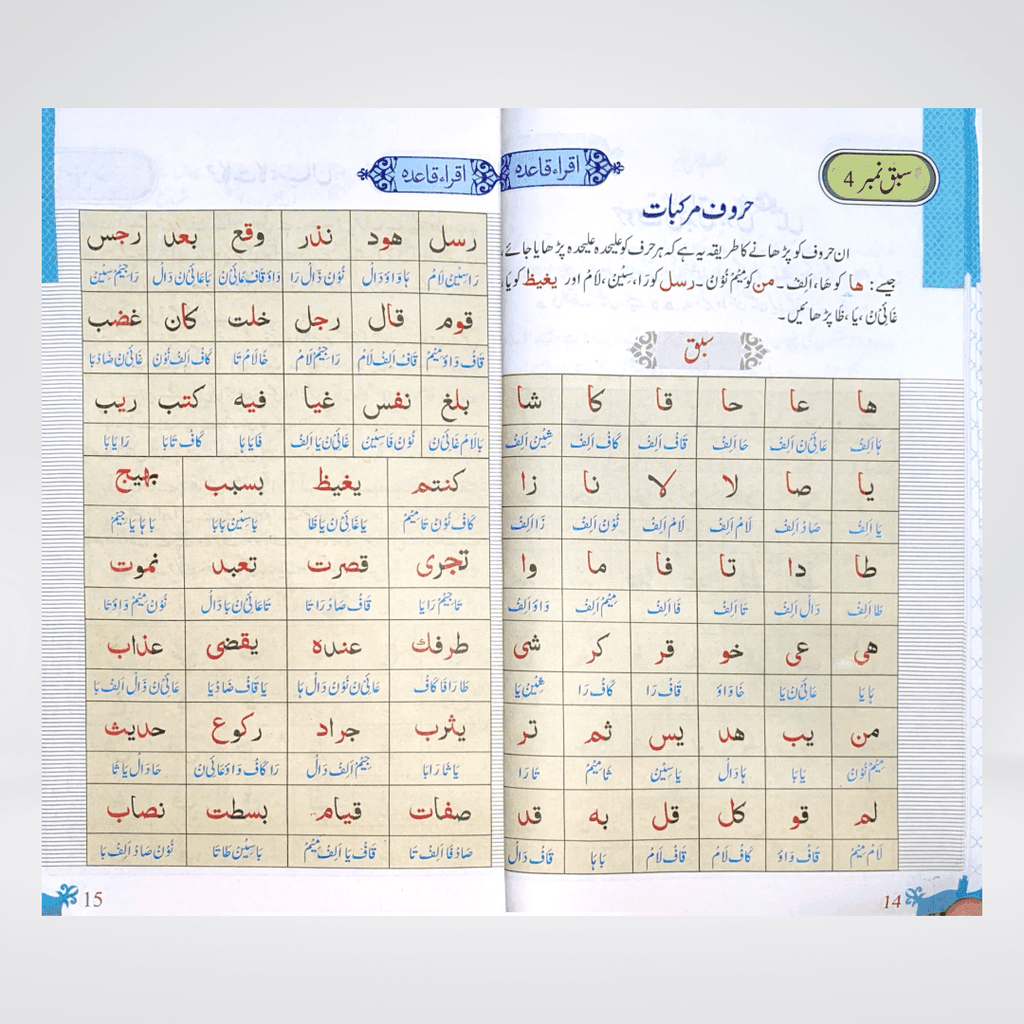 سبق نمبر 4
اقراء قاعدہ
حروف مرکبات
ان حروف کو پڑھانے کا طریقہ یہ ہے کہ ہر حرف کو علیحدہ علیحدہ پڑھایا جائے،
جیسے: ھا کو ھَا، اَلِفْ۔ من کو مِیْمْ نُوْنْ۔ رسل کو رَا، سِیْنْ، لَامْ اور یغیظ کو یَا،
غَائِنْ، یَا، ظَا پڑھائیں۔
سبق
ها عا حا قا کا شا
ہَا اَلِفْ عَائِنْ اَلِفْ حَا اَلِفْ قَافْ اَلِفْ کَافْ اَلِفْ شِیْنْ اَلِفْ
یا صا لا لا نا زا
یَا اَلِفْ صَادْ اَلِفْ لَامْ اَلِفْ لَامْ اَلِفْ نُوْنْ اَلِفْ زَا اَلِفْ
طا دا تا فا ما وا
طَا اَلِفْ دَالْ اَلِفْ تَا اَلِفْ فَا اَلِفْ مِیْمْ اَلِفْ وَاوْ اَلِفْ
هی عی خو قر کر شی
ہَا یَا عَائِنْ یَا خَا وَاوْ قَافْ رَا کَافْ رَا شِیْنْ یَا
من یب هد یس ثم تر
مِیْمْ نُوْنْ یَا بَا ہَا دَالْ یَا سِیْنْ ثَا مِیْمْ تَا رَا
لم قو کل قل به قد
لَامْ مِیْمْ قَافْ وَاوْ کَافْ لَامْ قَافْ لَامْ بَا ہَا قَافْ دَالْ
14
اقراء قاعدہ
رسل هود نذر وقع بعد رجس
رَا سِیْنْ لَامْ ہَا وَاوْ دَالْ نُوْنْ ذَالْ رَا وَاوْ قَافْ عَائِنْ بَا عَائِنْ دَالْ رَا جِیْمْ سِیْنْ
قوم قال رجل خلت کان غضب
قَافْ وَاوْ مِیْمْ قَافْ اَلِفْ لَامْ رَا جِیْمْ لَامْ خَا لَامْ تَا کَافْ اَلِفْ نُوْنْ غَائِنْ ضَادْ بَا
بلغ نفس غیا فیه کتب ریب
بَا لَامْ غَائِنْ نُوْنْ فَا سِیْنْ غَائِنْ یَا اَلِفْ فَا یَا ہَا کَافْ تَا بَا رَا یَا بَا
کنتم یغیظ بسبب بهیج
کَافْ نُوْنْ تَا مِیْمْ یَا غَائِنْ یَا ظَا بَا سِیْنْ بَا بَا بَا ہَا یَا جِیْمْ
تجری قصرت تعبد نموت
تَا جِیْمْ رَا یَا قَافْ صَادْ رَا تَا تَا عَائِنْ بَا دَالْ نُوْنْ مِیْمْ وَاوْ تَا
طرفك عنده یقضی عذاب
طَا رَا فَا کَافْ عَائِنْ نُوْنْ دَالْ ہَا یَا قَافْ ضَادْ یَا عَائِنْ ذَالْ اَلِفْ بَا
یثرب جراد رکوع حدیث
یَا ثَا رَا بَا جِیْمْ رَا اَلِفْ دَالْ رَا کَافْ وَاوْ عَائِنْ حَا دَالْ یَا ثَا
صفات قیام بسطت نصاب
صَادْ فَا اَلِفْ تَا قَافْ یَا اَلِفْ مِیْمْ بَا سِیْنْ طَا تَا نُوْنْ صَادْ اَلِفْ بَا
15